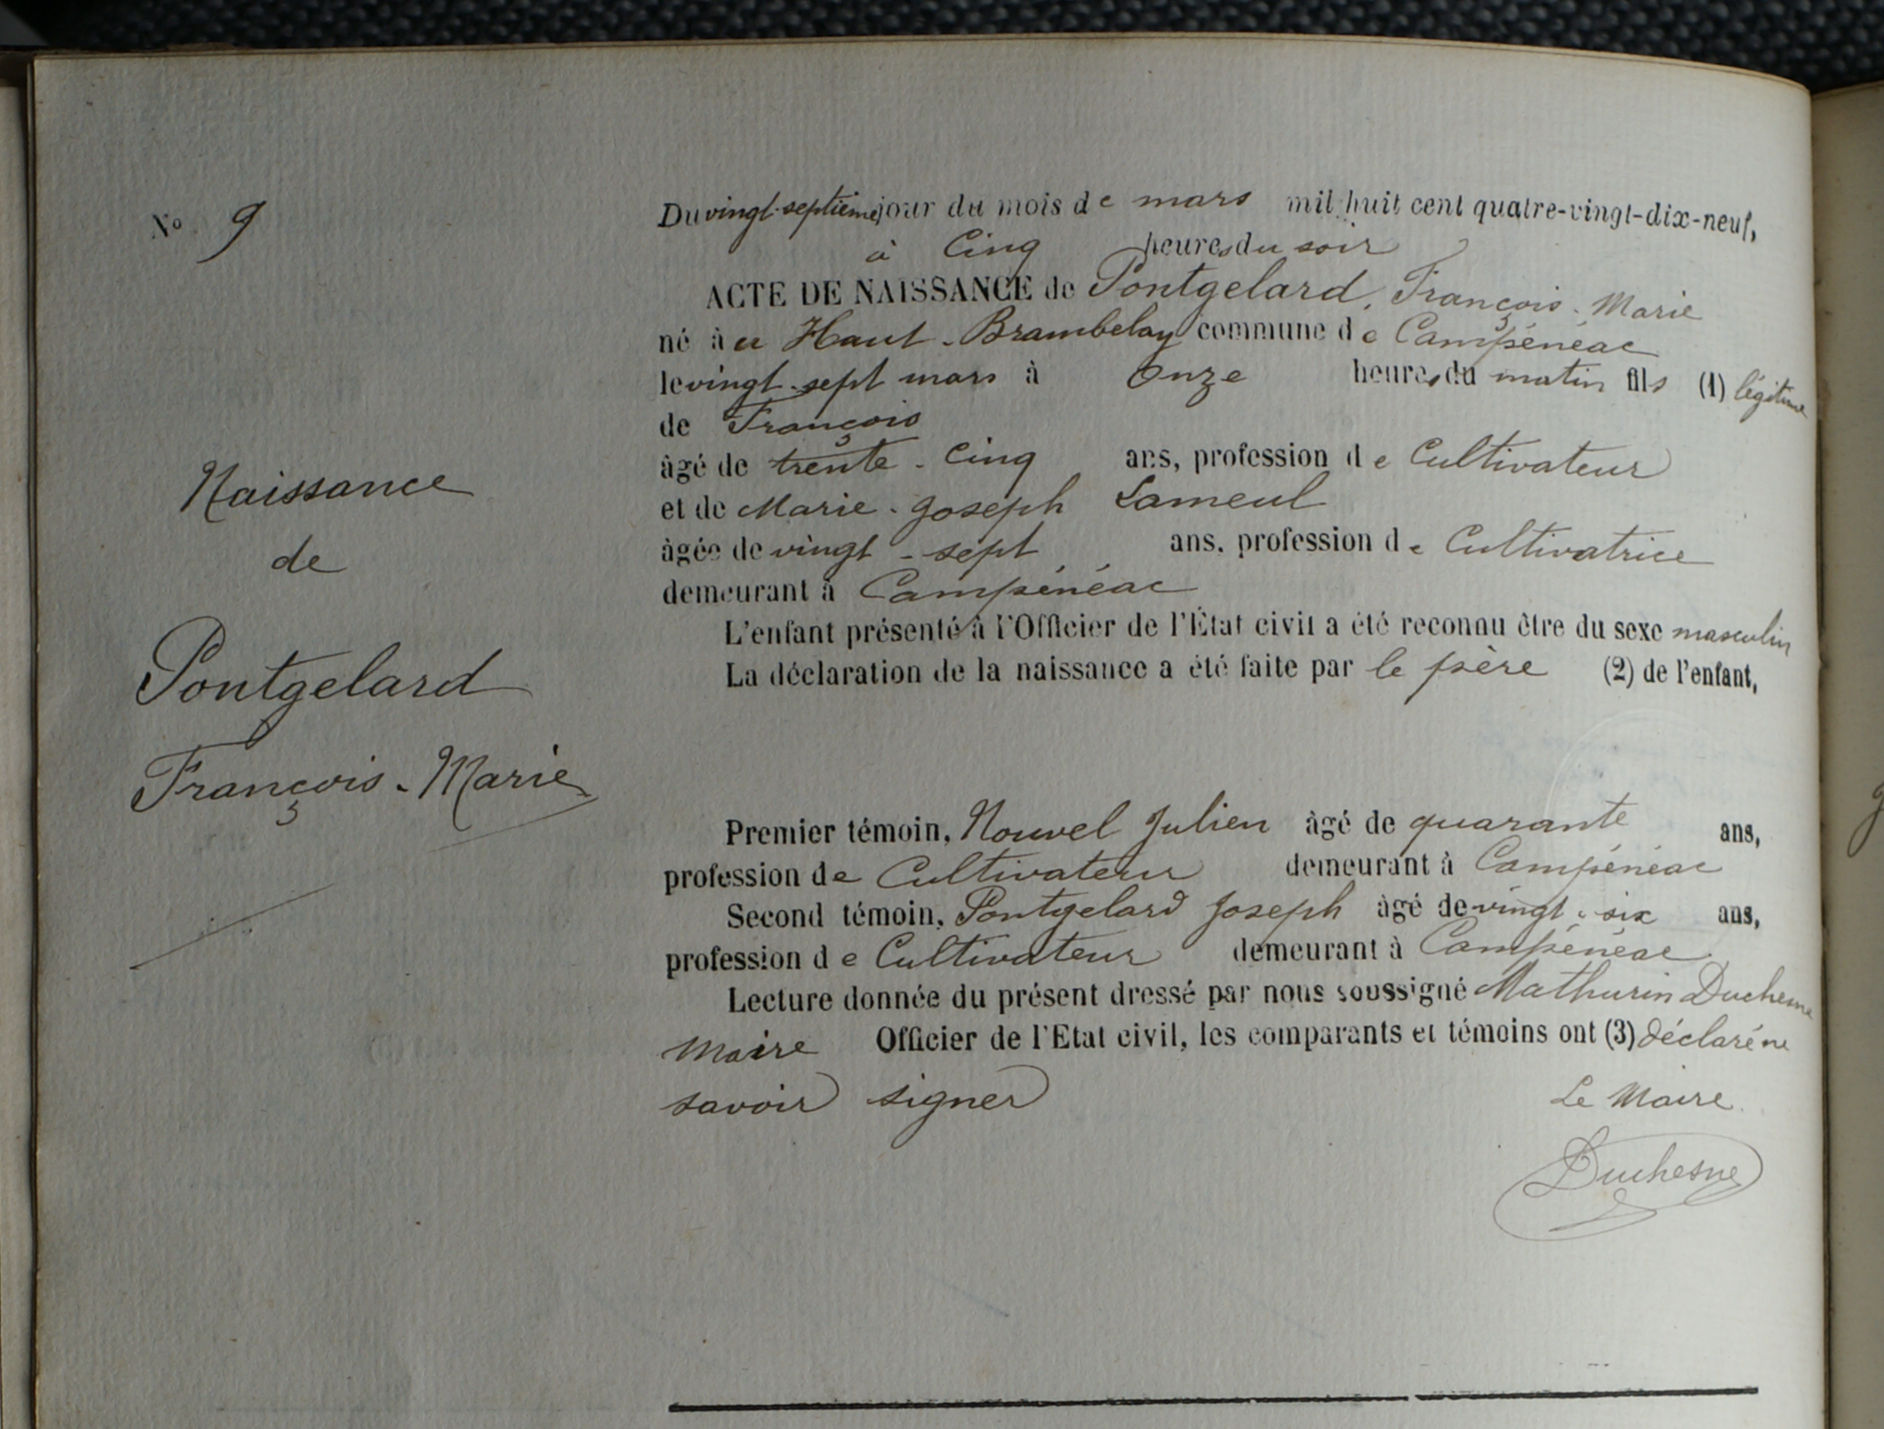 N° 9
Naissance
de
Pontgelard
François-Marie
Du vingt-septième jour du mois de mars mil huit cent quatre-vingt-dix-neuf,
à Cinq heures du soir
ACTE DE NAISSANCE de Pontgelard, François-Marie
né à au Haut-Brambelay commune de Campénéac
le vingt-sept mars à Onze heures du matin fils (1) légitime
de François
âgé de trente-Cinq ans, profession de Cultivateur
et de Marie-Joseph Lameul
âgée de vingt-sept ans, profession de Cultivatrice
demeurant à Campénéac
L'enfant présenté à l'Officier de l'État civil a été reconnu être du sexe masculin
La déclaration de la naissance a été faite par le père (2) de l'enfant,
Premier témoin, Nouvel Julien âgé de quarante ans,
profession de Cultivateur demeurant à Campénéac
Second témoin, Pontgelard Joseph âgé de vingt-six ans,
profession de Cultivateur demeurant à Campénéac
Lecture donnée du présent dressé par nous soussigné Mathurin Duchesne
Maire Officier de l'Etat civil, les comparants et témoins ont (3) déclaré ne
savoir signer
Le Maire
Duchesne